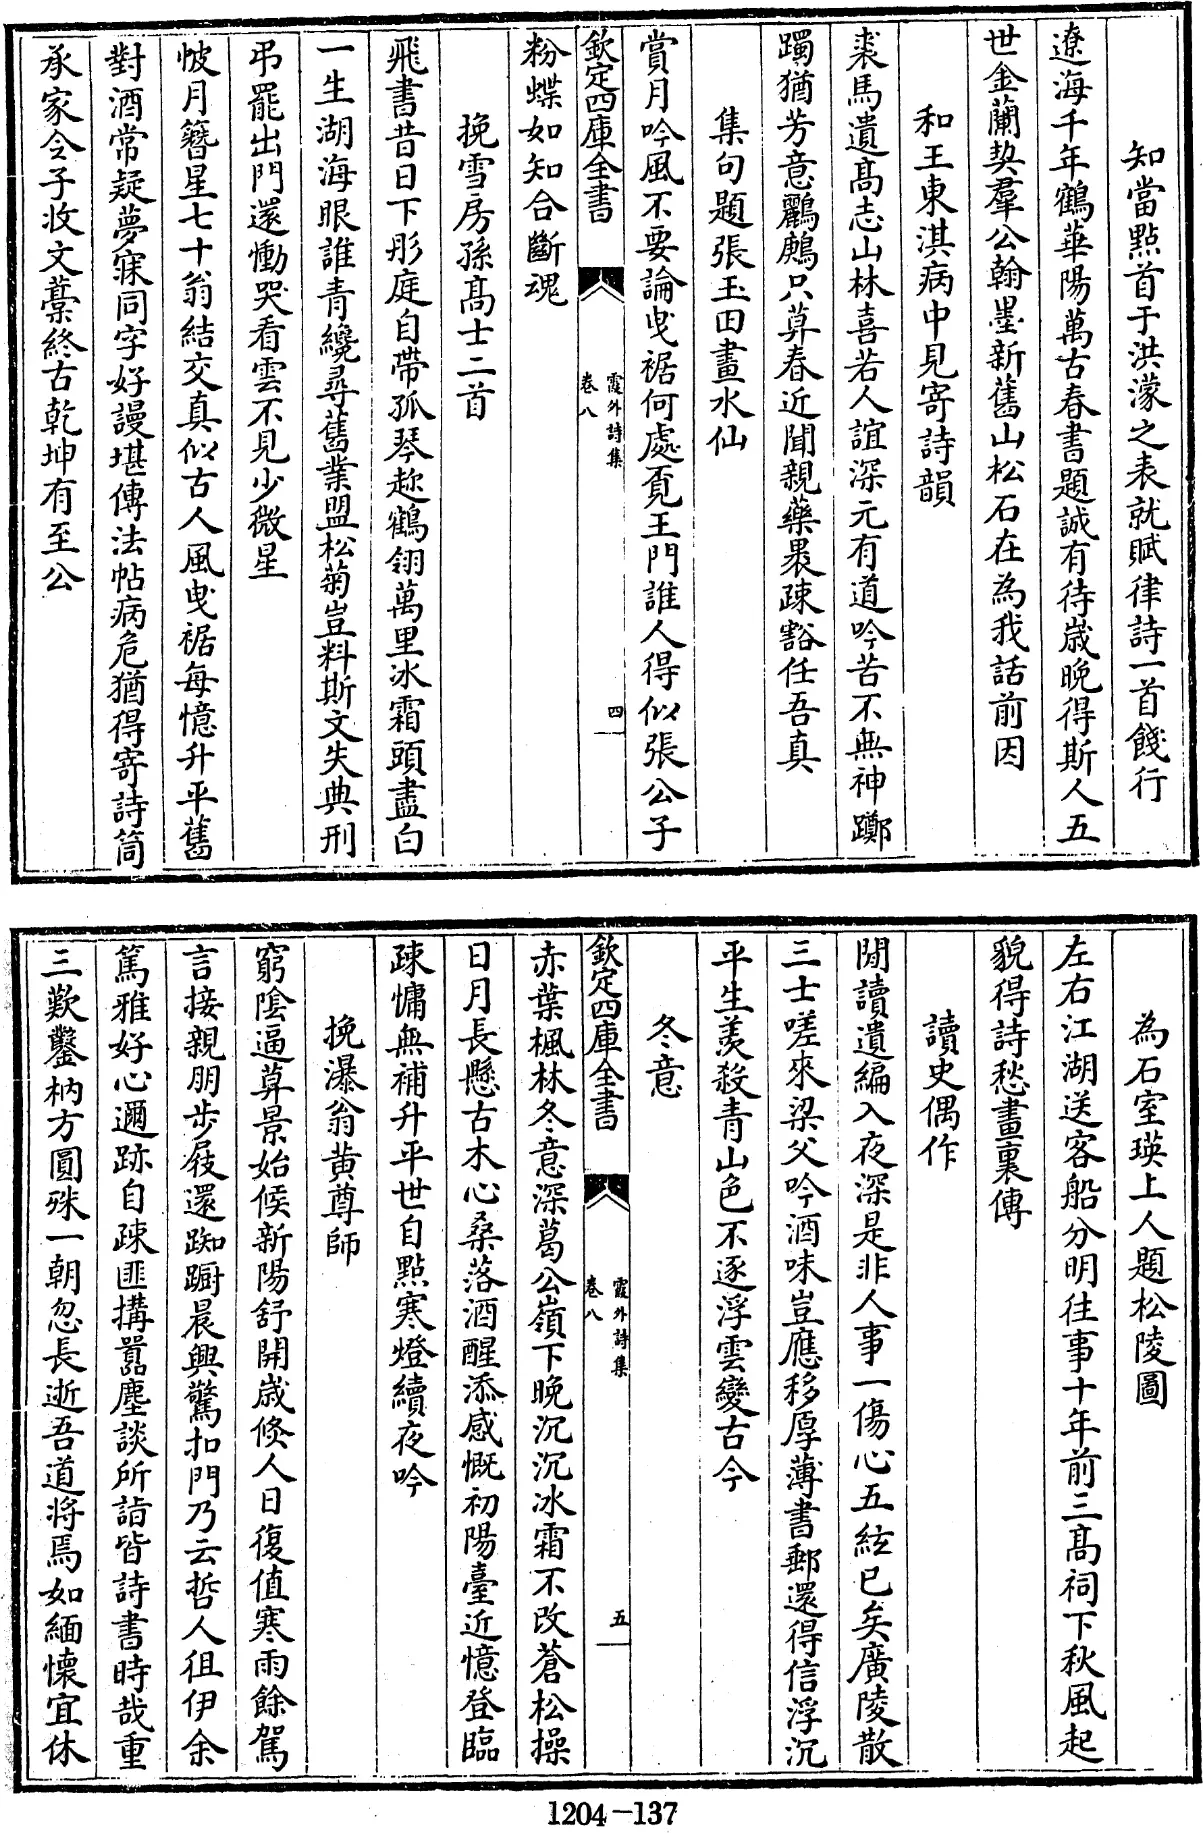 知當點首于洪濛之表就賦律詩一首餞行
遼海千年鶴華陽萬古春書題誠有待歲晚得斯人五
世金蘭契羣公翰墨新舊山松石在為我話前因
和王東淇病中見寄詩韻
裘馬遺髙志山林喜若人誼深元有道吟苦不無神躑
躅猶芳意鸝鷓只算春近聞親藥褁疎豁任吾真
集句題張玉田畫水仙
賞月吟風不要論曵裾何處覔王門誰人得似張公子
欽定四庫全書
霞外詩集
卷八
四
粉蝶如知合斷魂
挽雪房孫髙士二首
飛書昔日下彤庭自帶孤琴趂鶴翎萬里冰霜頭盡白
一生湖海眼誰青纔尋舊業盟松菊豈料斯文失典刑
弔罷出門還慟哭看雲不見少微星
帔月簪星七十翁結交真似古人風曵裾每憶升平舊
對酒常疑夢寐同字好謾堪傳法帖病危猶得寄詩筒
承家令子收文藁終古乾坤有至公
為石室瑛上人題松陵圖
左右江湖送客船分明往事十年前三髙祠下秋風起
貌得詩愁畫裏傳
讀史偶作
閒讀遺編入夜深是非人事一傷心五絃已矣廣陵散
三士嗟來梁父吟酒味豈應移厚薄書郵還得信浮沉
平生羨殺青山色不逐浮雲變古今
冬意
欽定四庫全書
霞外詩集
卷八
五
赤葉楓林冬意深葛公嶺下晚沉沉冰霜不改蒼松操
日月長懸古木心桑落酒醒添感慨初陽臺近憶登臨
疎慵無補升平世自點寒燈續夜吟
挽瀑翁黄尊師
窮隂逼算景始候新陽舒開嵗倐人日復值寒雨餘駕
言接親朋步屐還踟蹰晨興驚扣門乃云哲人徂伊余
篤雅好心邇跡自疎匪搆囂塵談所詣皆詩書時哉重
三歎鑿枘方圓殊一朝忽長逝吾道將焉如緬懷宜休
1204-137